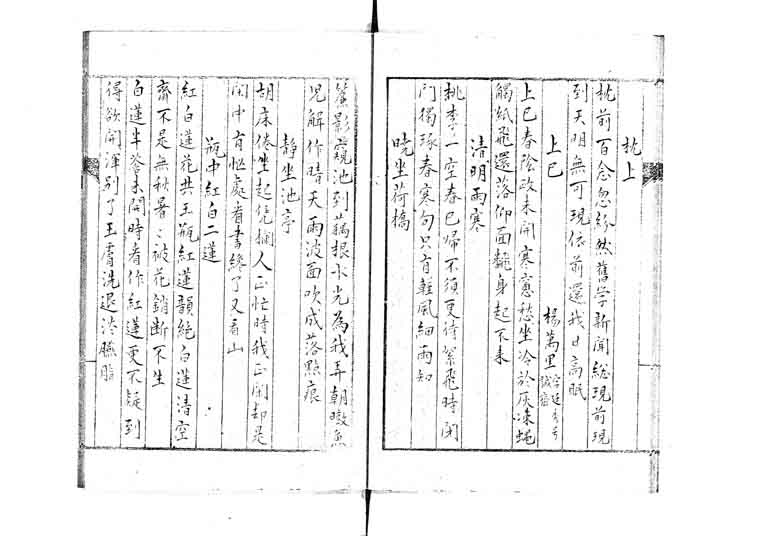 枕上
枕前百念忽紛然舊学新聞總現前現
到天明無可現依前還我日高眠
上巳
楊萬里
上巳春陰政未開寒窗愁坐冷於灰凍蠅
觸紙飛還落仰面翻身起不来
清明雨寒
桃李一空春已歸不須更待絮飛時閉
門獨琢春寒句只有輕風細雨知
暁坐荷橋
簾影窺池到藕根水光為我弄朝暾魚
児解作晴天雨波面吹成落點痕
静坐池亭
胡床倦坐起凭欄人正忙時我正閑却是
閑中有忙處看書終了又看山
瓶中紅白二蓮
紅白蓮花共玉瓶紅蓮韻絶白蓮清空
齋不是無秋暑〻被花銷断不生
白蓮半荅未開時看作紅蓮更不疑到
得欲開渾别了玉膚洗退淺臙脂